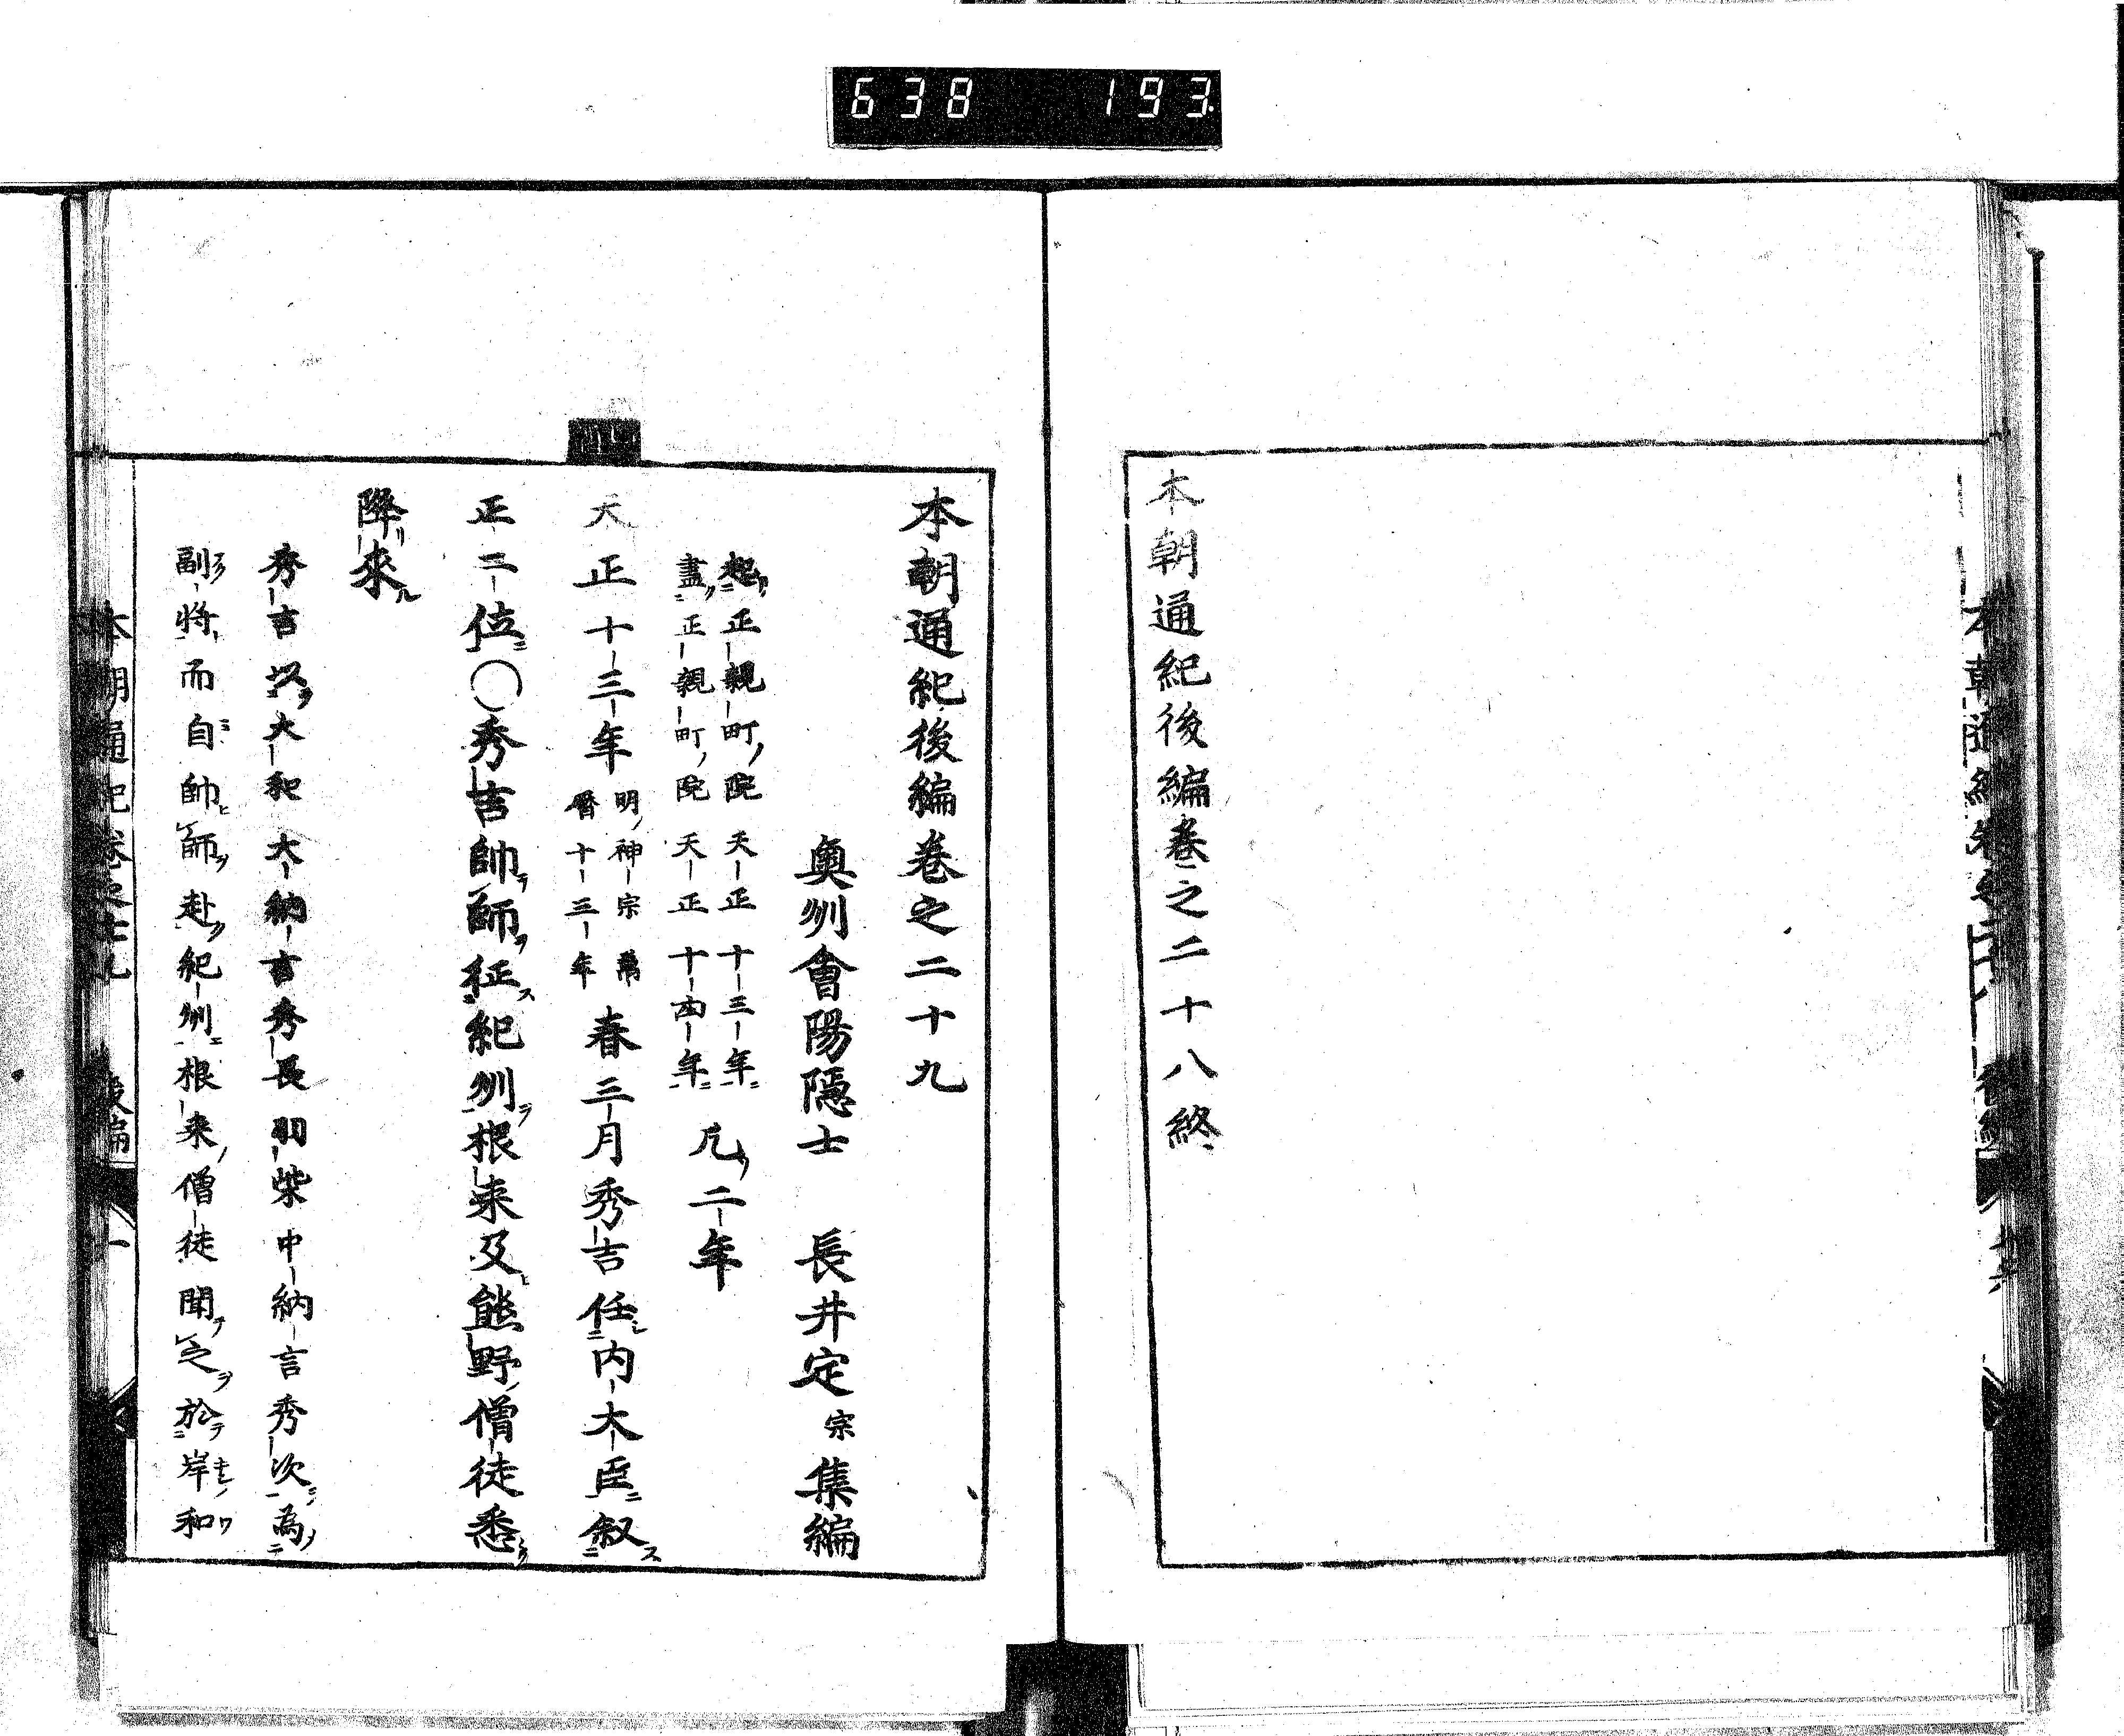 638 193
本朝通紀後編卷之二十八終
本朝通紀後編卷之二十九
奧州會陽隱士 長井定宗集編
起正親町院天正十三年
盡正親町院天正十四年
凡二年
天正十三年明神宗萬曆十三年春三月秀吉任内大臣叙
正二位〇秀吉帥師征紀州根来及熊野僧徒悉
降來
秀吉以大和大納言秀長羽柴中納言秀次為
副將而自帥師赴紀州根来僧徒聞之於岸和